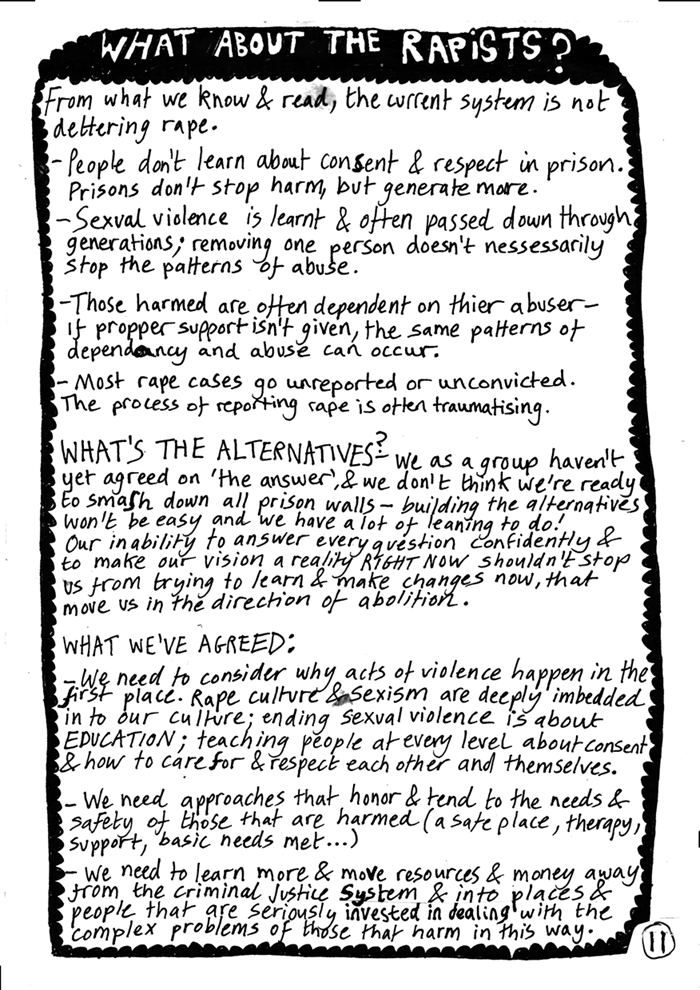 WHAT ABOUT THE RAPiSTS?
From what we know & read, the current system is not
dettering rape.
- People don't learn about consent & respect in prison.
Prisons don't stop harm, but generate more.
- Sexual violence is learnt & often passed down through
generations; removing one person doesn't nessessarily
stop the patterns of abuse.
- Those harmed are often dependent on thier abuser -
if propper support isn't given, the same patterns of
dependancy and abuse can occur.
- Most rape cases go unreported or unconvicted.
The process of reporting rape is often traumatising.
WHAT'S THE ALTERNATIVES? We as a group haven't
yet agreed on 'the answer', & we don't think we're ready
to smash down all prison walls - building the alternatives
won't be easy and we have a lot of leaning to do!
Our inability to answer every question confidently &
to make our vision a reality RIGHT NOW shouldn't stop
us from trying to learn & make changes now, that
move us in the direction of abolition.
WHAT WE'VE AGREED:
- We need to consider why acts of violence happen in the
first place. Rape culture & sexism are deeply imbedded
in to our culture; ending sexual violence is about
EDUCATION; teaching people at every level about consent
& how to care for & respect each other and themselves.
- We need approaches that honor & tend to the needs &
safety of those that are harmed (a safe place, therapy,
support, basic needs met...)
- We need to learn more & move resources & money away
from the criminal Justice System & into places &
people that are seriously invested in dealing with the
complex problems of those that harm in this way.
11